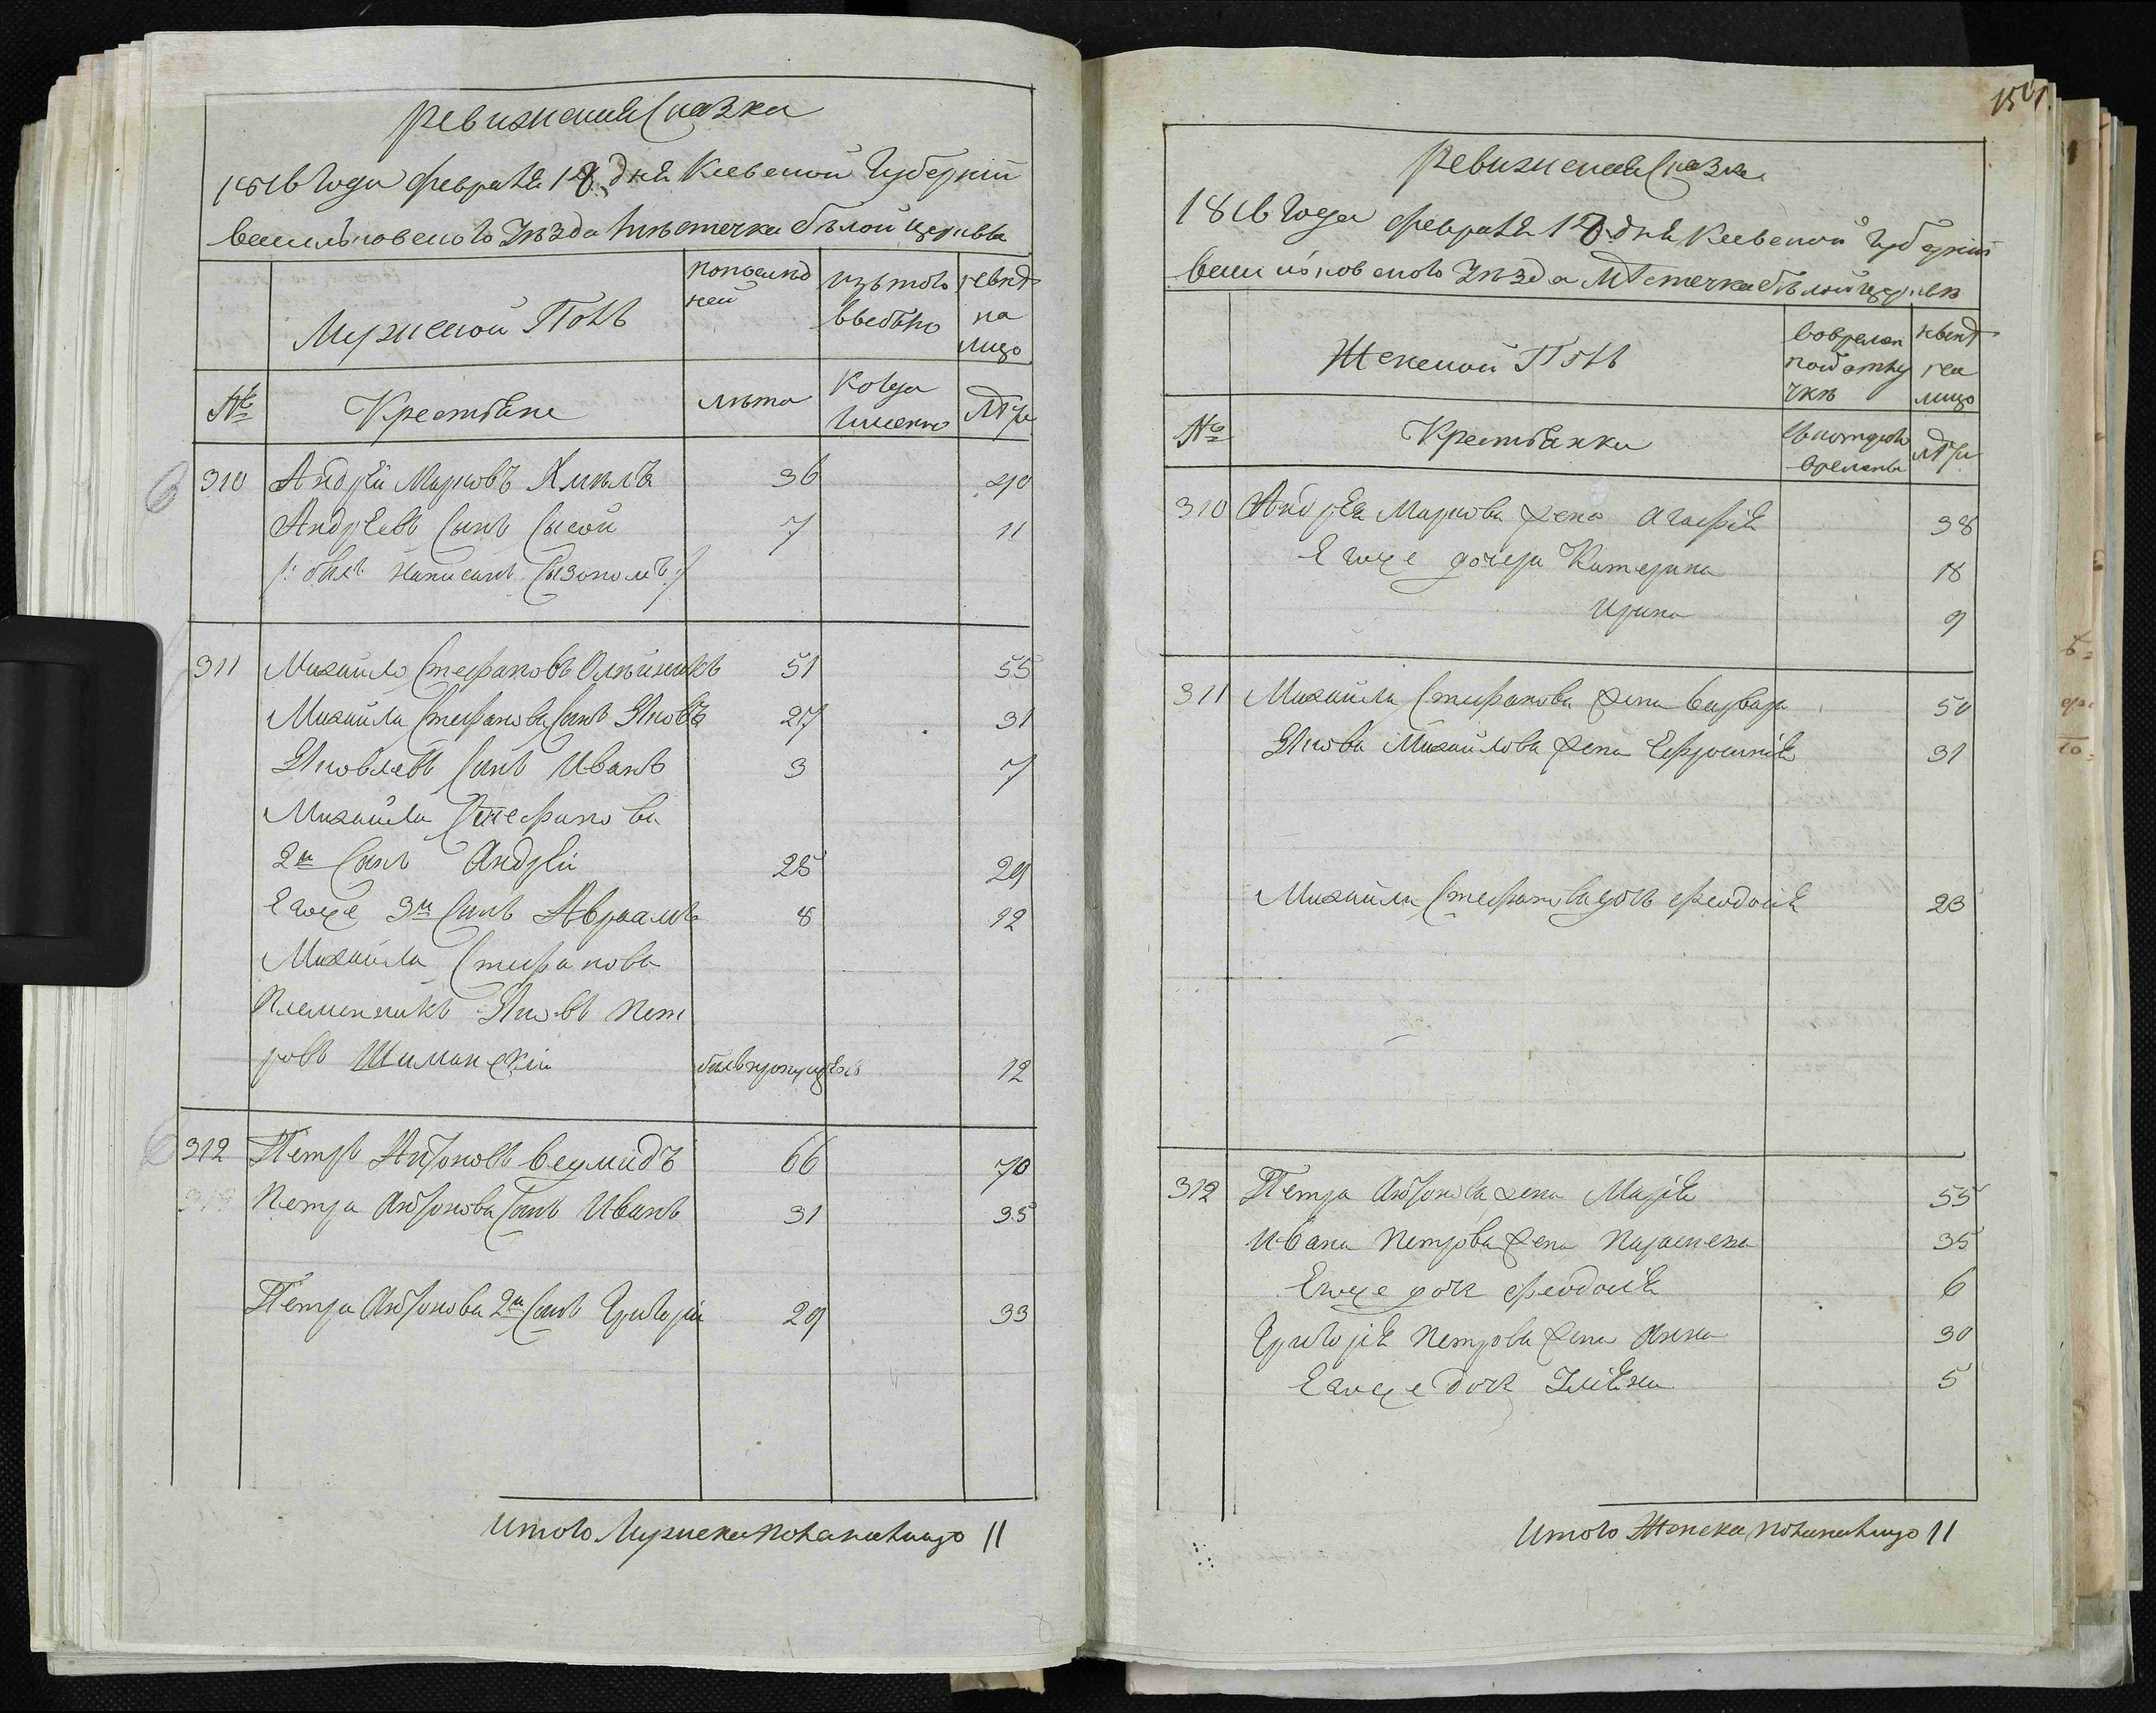 Ревижская Сказка
1816 Года февраля 18 дня Киевской Губерніи
Васильковского Уѣзда Мѣстечка бѣлой церквы
Мужеской Полъ
попослѣд
ней
изътого
выбыло
нынѣ
на
лицо
№
Крестьяне
лѣта
Когда
имянно
Лѣта
310 Андрей Марковъ Хмиль 36 40
Андреевъ Сынъ Сысой 7 11
/: былъ написанъ Сызономъ :/
311 Михайло Стефановъ Олѣйникъ 51 55
Михайла Стефанова Сынъ Яковъ 27 31
Яковлевъ Сынъ Иванъ 3 7
Михайла Стефанова
2й Сынъ Андрей 25 29
Егоже 3й Сынъ Авраамъ 8 12
Михайла Стефанова
Племянникъ Яковъ Пет
ровъ Шиманскій былъпропущенъ 12
312 Петръ Антоновъ 66 70
Петра Антонова Сынъ Иванъ 31 35
Петра Антонова 2й Сынъ Григорій 29 33
Итого Мужеска пола налицо 11
Ревижская Сказка
1816 Года февраля 18 дня Киевской Губерніи
Васильковского Уѣзда Мѣстечка бѣлой церквы
Женской Полъ
Вовремен
ной отлу
чкѣ
нынѣ
на
лицо
№
Крестьянки
съкотораго
времены
Лѣта
310 Андрея Маркова жена Агафія 38
Егоже дочери Катерина 18
Ирина 9
311 Михайла Стефанова жена Варвара 50
Якова Михайлова жена Ефросинія 31
Михайла Стефанова дочь Феодосія 23
312 Петра Антонова жена Марія 55
Ивана Петрова жена Параскева 35
Егоже дочь Феодосія 6
Григорія Петрова жена Анна 30
Егоже дочь Уліяна 5
Итого Женска пола налицо 11